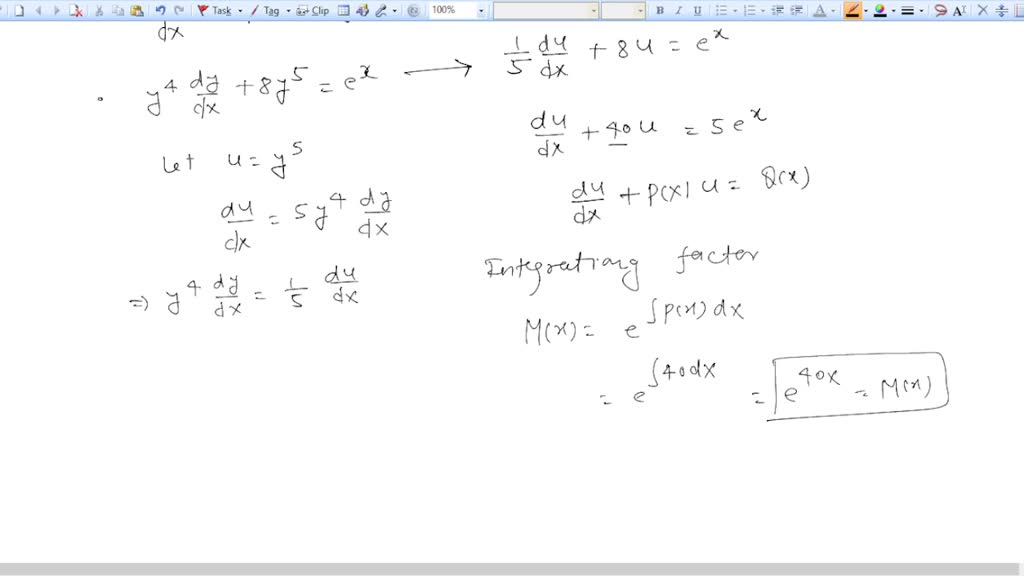 Task Tag Clip 100% B I U
dx
y^4 dy/dx + 8y^5 = e^x →
Let u = y^5
du/dx = 5y^4 dy/dx
=> y^4 dy/dx = 1/5 du/dx
1/5 du/dx + 8u = e^x
du/dx + 40u = 5e^x
du/dx + P(x) u = Q(x)
Integrationg factor
M(x) = e^∫P(x)dx
= e^∫40dx = e^40x = M(x)